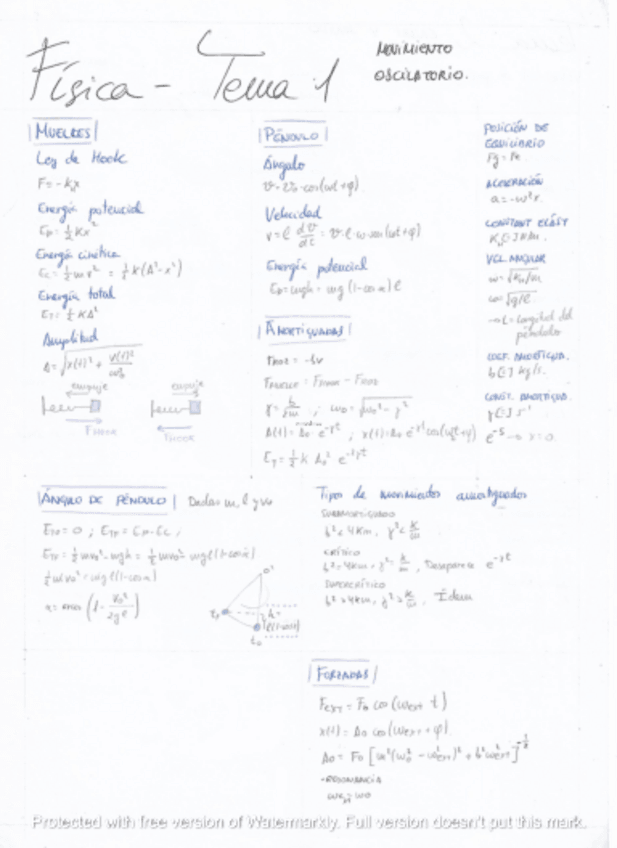 Física - Tema 1
MOVIMIENTO
OSCILATORIO.
MUELLES
Ley de Hook
F = -kx
Energía potencial
Ep = ½ Kx²
Energía cinética
Ec = ½ m v² = ½ K (A² - x²)
Energía total
ET = ½ KA²
Amplitud
A = √x(t)² + v(t)²/ω0²
empuje
empuje
FHOOK
FHOOK
PÉNDULO
Ángulo
ϑ = ϑ0 · cos(ωt + φ)
Velocidad
v = l dϑ/dt = ϑ · l · ω · sen(ωt + φ)
Energía potencial
Ep = mgh = mg (1 - cos α) l
AMORTIGUADAS
= -bv
γ = b/2m ; ω0 = √ω0² - γ²
A(t) = A0 e^-γt ; x(t) = A0 e^-γt cos(ωt + φ)
ET = ½ K A0² e^-2γt
POSICIÓN DE
EQUILIBRIO
Fg = Fe
ACELERACIÓN
a = -ω²x
CONSTANT ELÁST
VEL ANGULAR
ω = √K/m
ω = √g/l
→ L = longitud del
péndulo
COEF. AMORTIGUA.
b [=] kg/s.
CONST. AMORTIGUA.
γ [=] s⁻¹
ÁNGULO DE PÉNDULO
Dadas m, l y v0
½ m v0² = mg l (1 - cos α)
h =
l(1-cosα)
Tipos de movimientos amortiguados
SUBAMORTIGUADO
b² < 4Km, γ² < K/m
CRÍTICO
b² = 4Km, γ² = K/m, Desaparece e^-γt
SUPERCRÍTICO
b² > 4Km, γ² > K/m, Ídem
FORZADAS
FEXT = F0 cos (ωext t)
x(t) = A0 cos (ωext + φ)
A0 = F0 [m²(ω0² - ωext²)² + b² ωext²]^-½
-RESONANCIA
ωext = ω0
Protected with free version of Watermarkly. Full version doesn't put this mark.